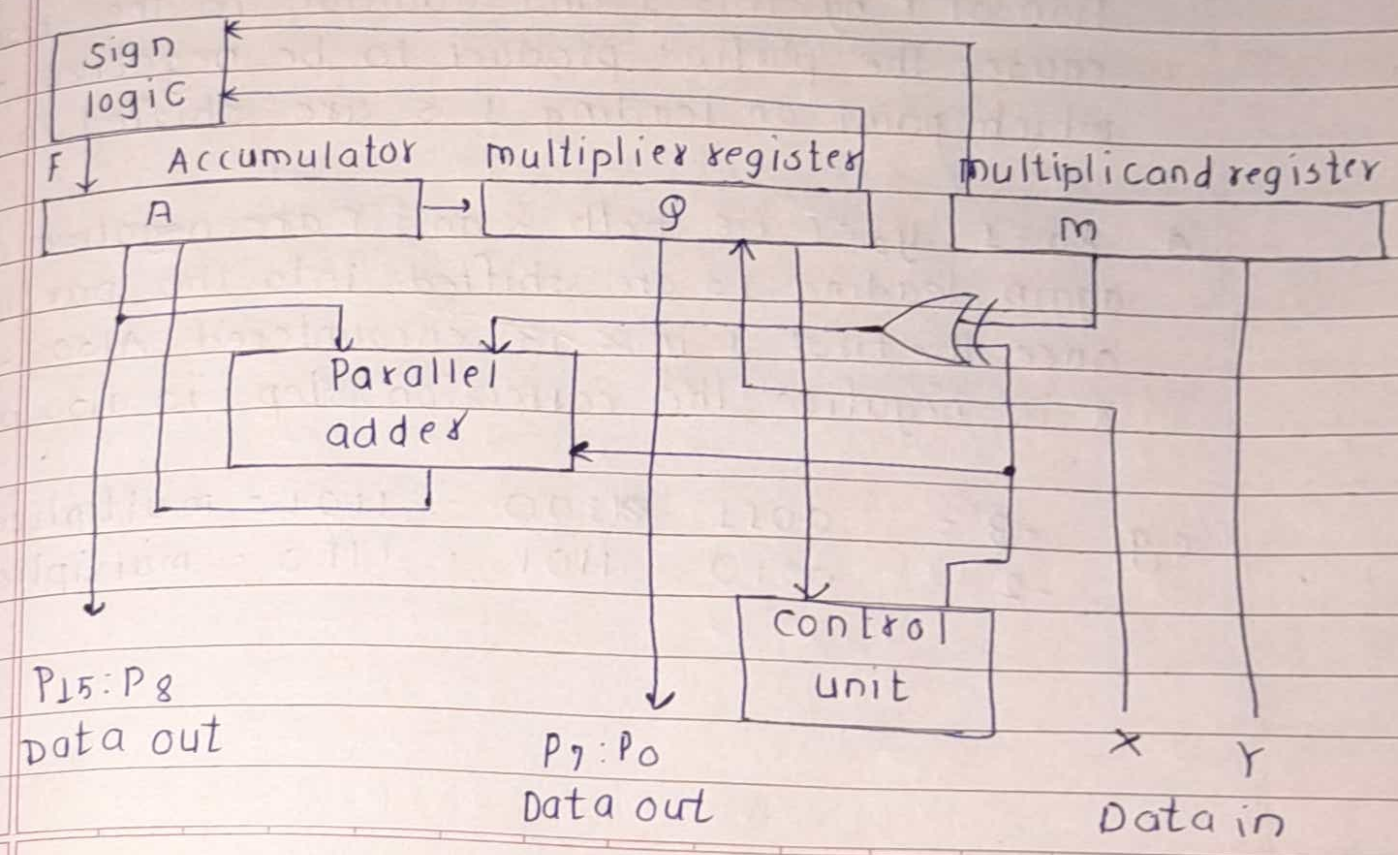 sign
logic
F
Accumulator
multiplier register
multiplicand register
A
Q
m
Parallel
adder
control
unit
P15:P8
Data out
P7:P0
Data out
X
Y
Data in